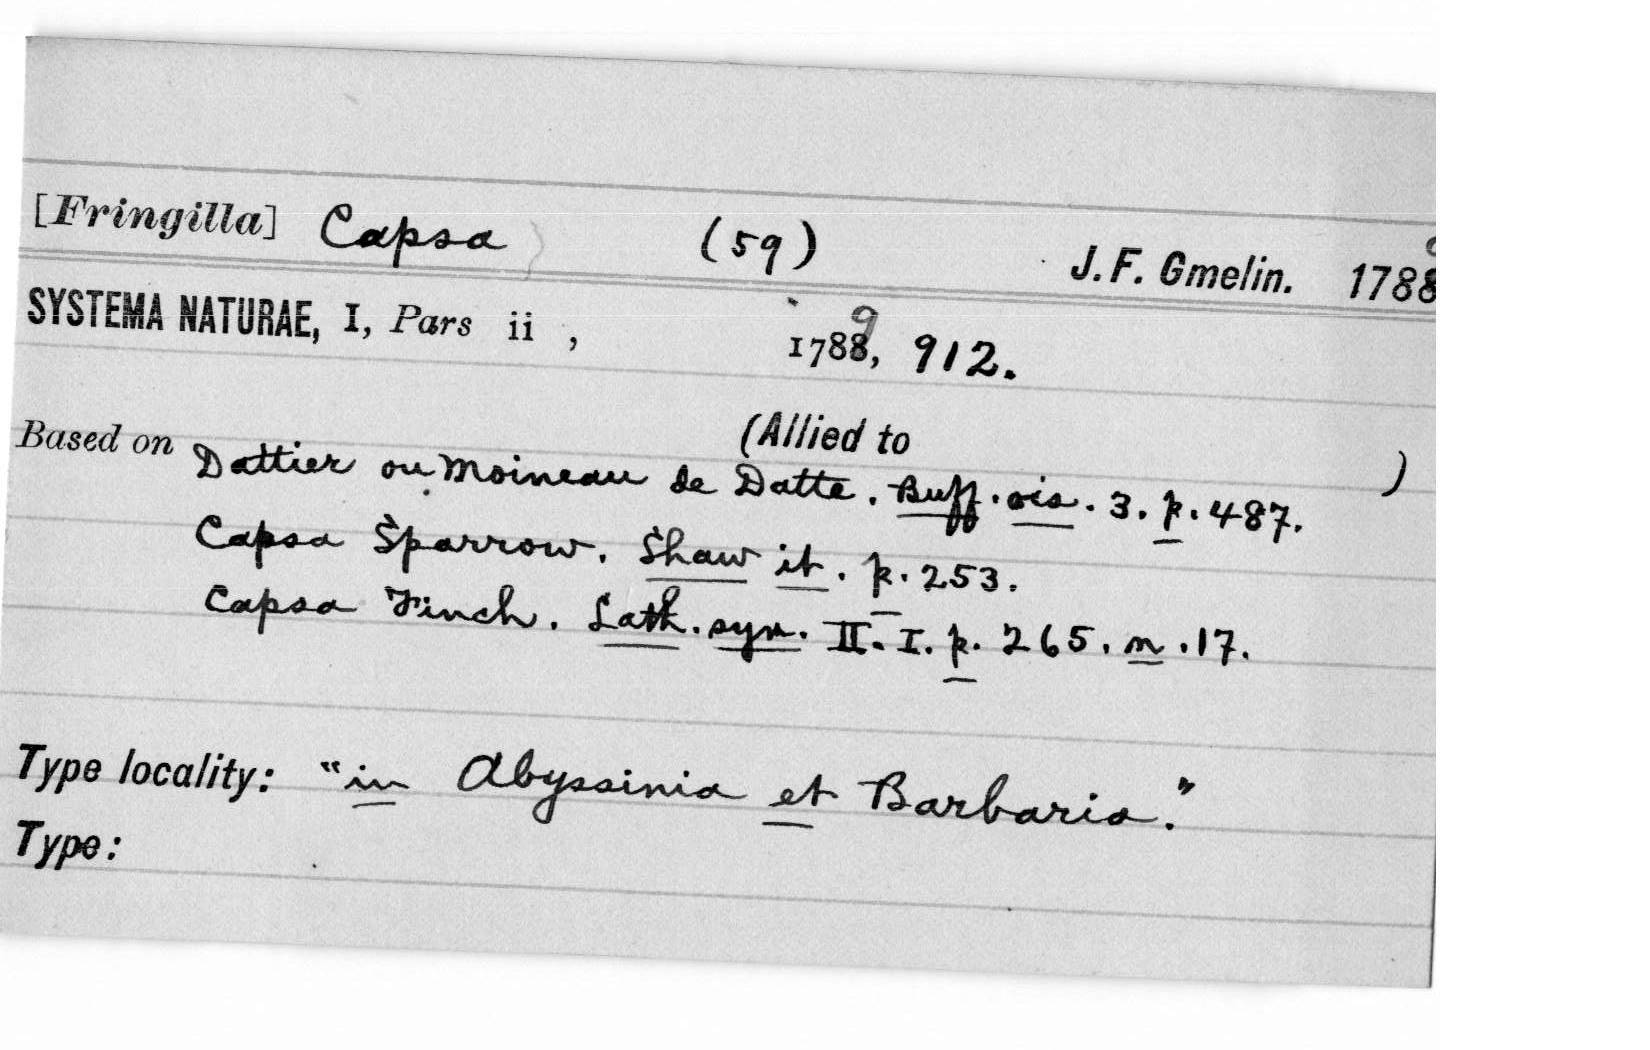 [Fringilla] Capsa (59) J. F. Gmelin. 1788
SYSTEMA NATURAE, I, Pars ii , 1789, 912.
Based on (Allied to )
Dattier ou Moineau de Datte. Buff. ois. 3. p. 487.
Capsa Sparrow. Shaw it. p. 253.
Capsa Finch. Lath. syn. II. I. p. 265. n. 17.
Type locality: "in Abyssinia et Barbaria."
Type: